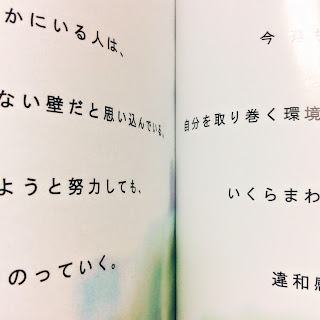 かにいる人は、
ない壁だと思い込んでいる、
ようと努力しても、
のっていく。
今
自分を取り巻く環境
いくらまわ
違和感